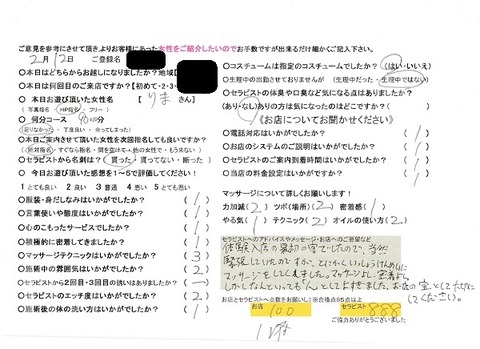 ご意見を参考にさせて頂き、よりお客様にあった女性をご紹介したいのでお手数ですが出来るだけ細かくご記入下さい。
2月12日 ご登録名
〇本日はどちらからお越しになりましたか?地域【
〇本日は何回目のご来店ですか?【初めて・2・3
〇 本日お遊び頂いた女性名 【 りま さん】
(写真指名・HP指名・フリー)
〇 何分コース 90分
(足りなかった・丁度良い・余ってしまった)
〇 本日ご案内させて頂いた女性を次回指名しても良いですか?
(絶対指名・すぐなら指名・間を空けて・他の女性で・もう来ない)
〇 セラピストから名刺は?(貰った・貰ってない・断った)
〇 今日お遊び頂いた感想を1~5で評価してください!
1とても良い 2良い 3普通 4悪い 5とても悪い
〇服装・身だしなみはいかがでしたか? ( 1 )
〇言葉使いや態度はいかがでしたか? ( 1 )
〇心のこもったサービスでしたか? ( 1 )
〇積極的に密着してきましたか? ( 1 )
〇マッサージテクニックはいかがでしたか? ( 3 )
〇施術中の雰囲気はいかがでしたか? ( 2 )
〇セラピストから2回目・3回目の誘いはありましたか? ( 一 )
〇セラピストのエッチ度はいかがでしたか? ( 2 )
〇施術後の体の洗い方はいかがでしたか? ( 1 )
〇コスチュームは指定のコスチュームでしたか?(はい・いいえ)
〇生理中の出勤させておりませんが (生理中だった・生理中ではない)
〇セラピストの体臭や口臭など気になる点はありましたか?
(あり・なし)ありの方は気になったのはどこですか?(
【お店についてお聞かせください】
〇電話対応はいかがでしたか? ( 1 )
〇お店のシステムのご説明はいかがでしたか? ( 1 )
〇セラピストのご案内到着時間はいかがでしたか? ( 1 )
〇当店の料金設定はいかがですか? ( 1 )
マッサージについて詳しくお願いします!
力加減( 2 ) ツボ(場所)( 2 ) 密着感( 1 )
やる気( 1 ) テクニック( 2 ) オイルの使い方( 2 )
セラピストへのアドバイスやマッサージ・お店へのご要望など
体験入店の最初の客でしたので、当然
緊張していたのですが、とにかくいっしょうけんめいに
マッサージをしてくれました。マッサージよし、密着よし
してください。
お店とセラピストへ点数をお願いし!※合格点85点以上
お店 100
セラピスト 888
ご協力ありがとうございました